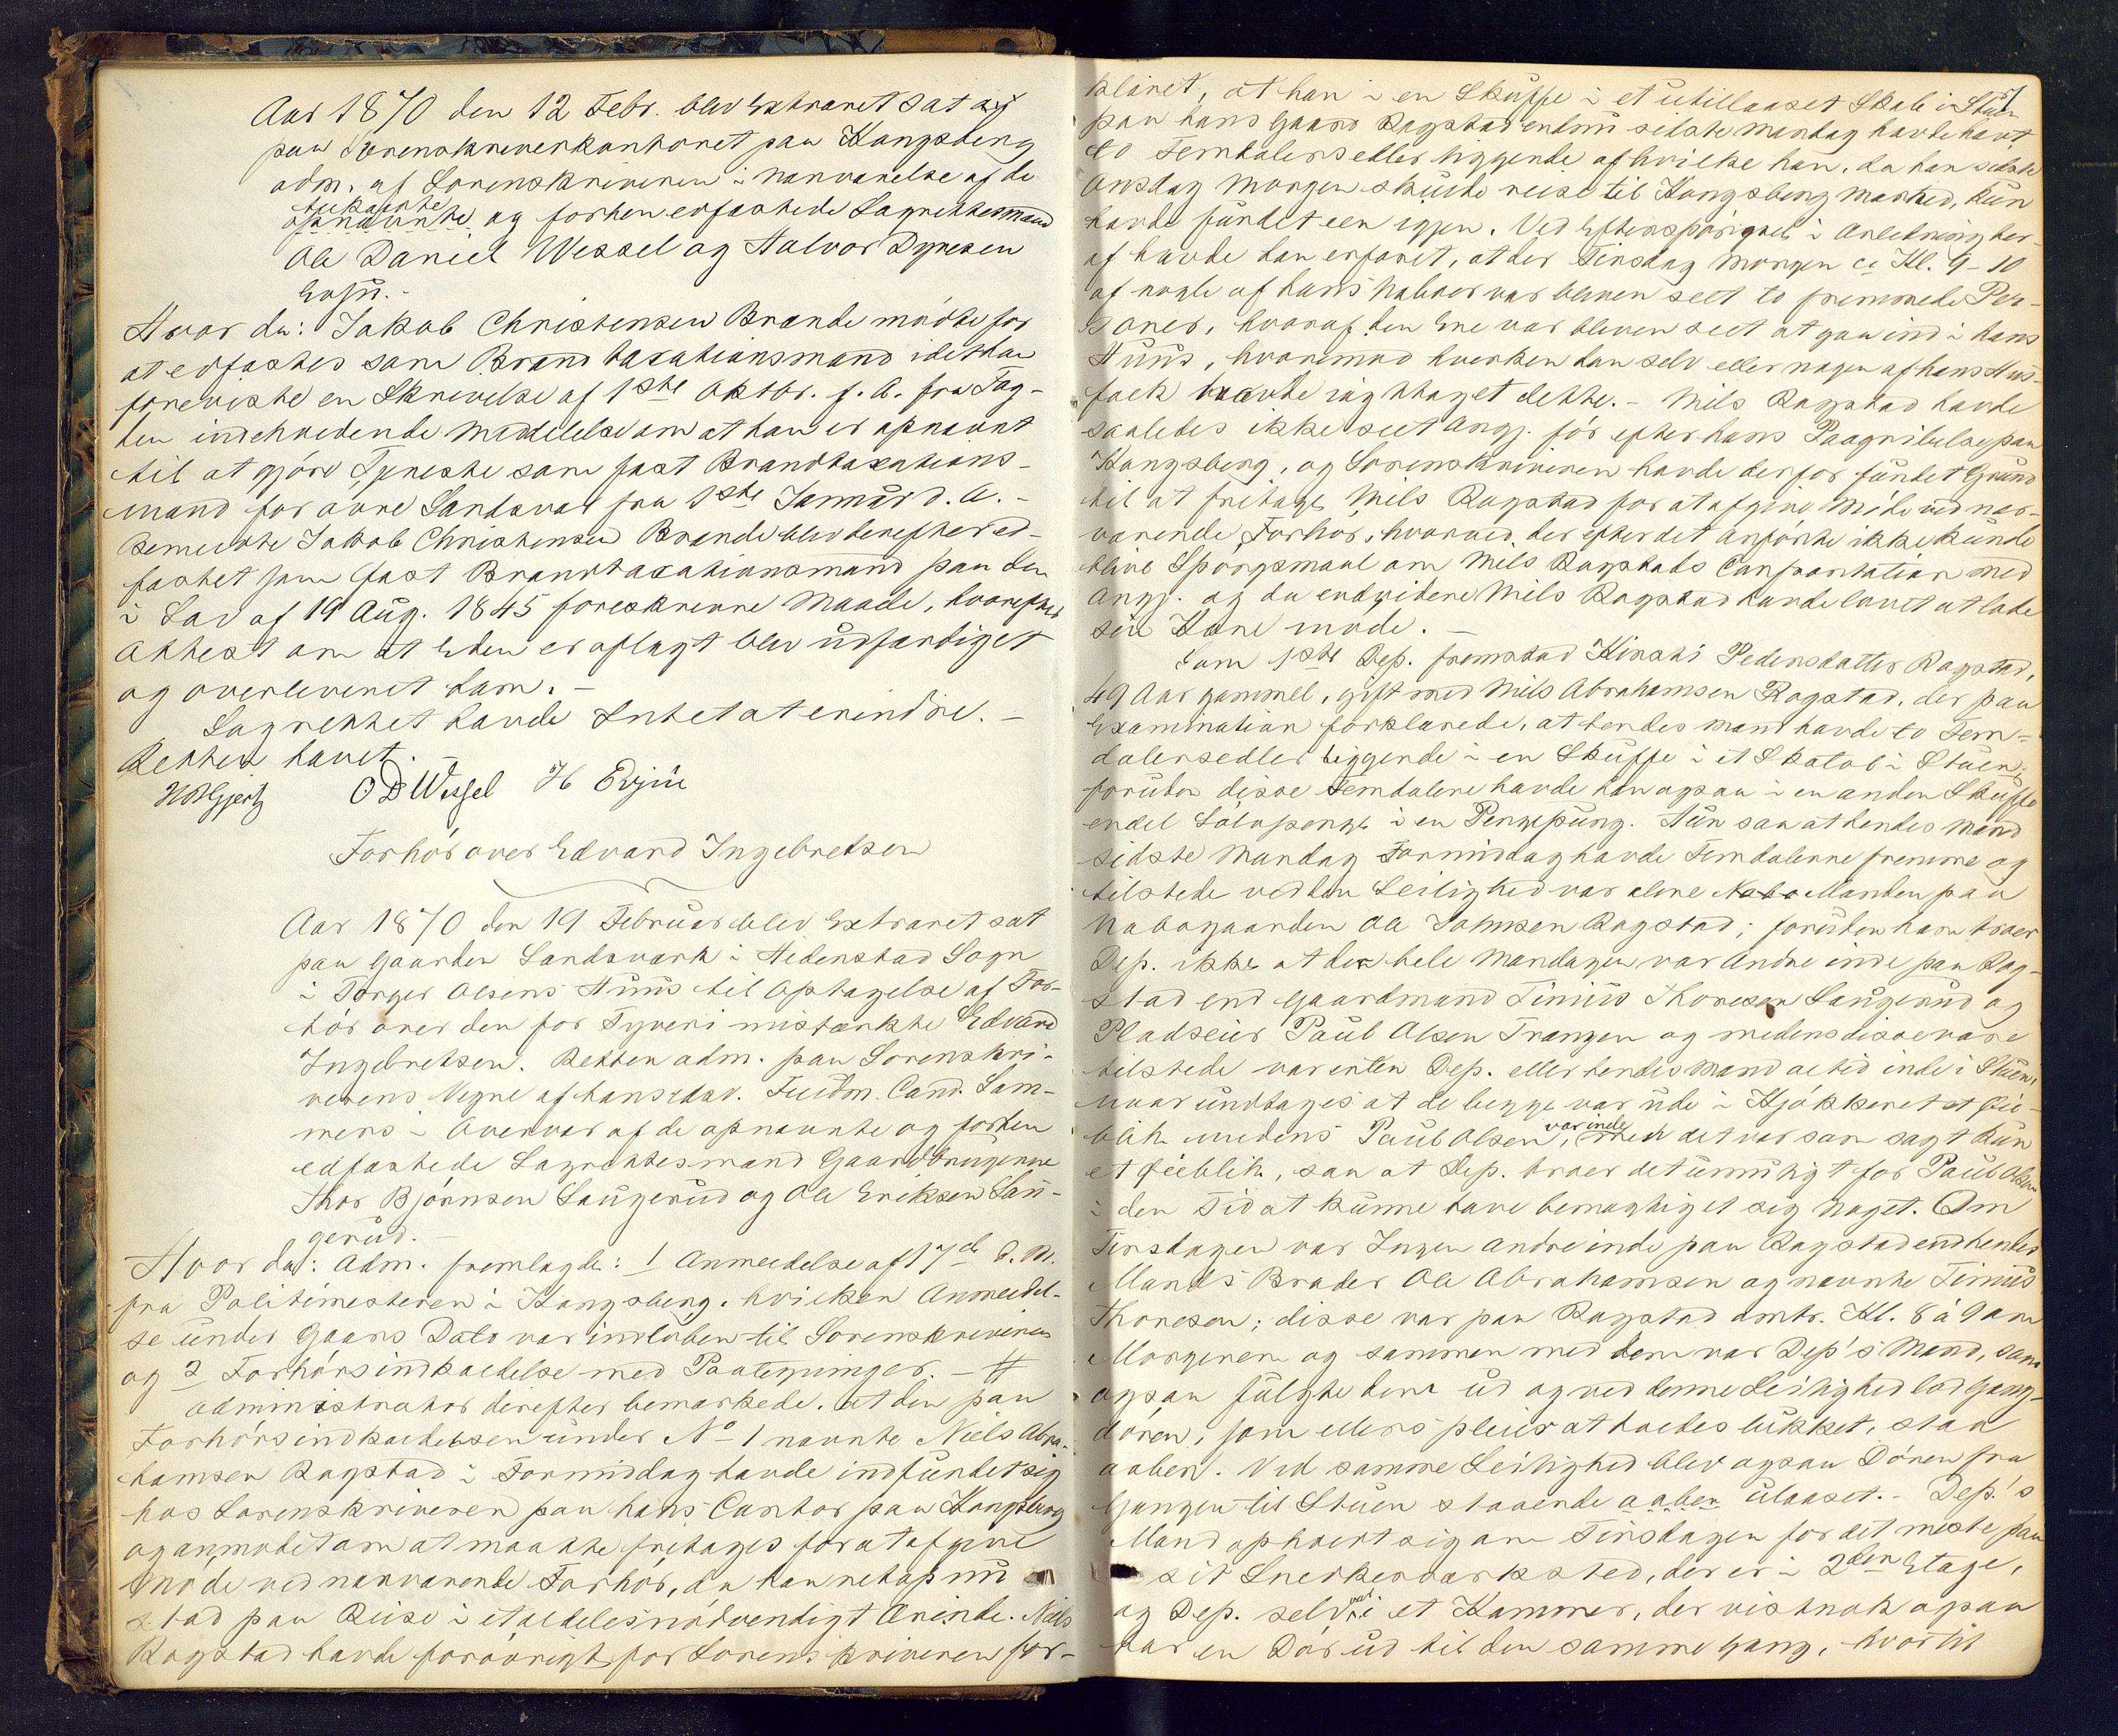 Aar 1870 den 12 Febr. blev Extraret sat og
paa Sorenskriverkontoret paa Kongsberg
adm. af Sorenskriveren i nærværelse af de
tilkaldte
opnævnte og forhen edfæstede Lagrettesmænd
Ole Daniel Wessel og Halvor Dynesen
Evju.-
Hvor da: Jakob Christensen Brænde mødte for
at edfæstes som Brandtaxationsmand idet han
foreviste en Skrivelse af 1ste Oktbr. f. A. fra Fog-
den indeholdende Meddelelse om at han er opnævnt
til at gjøre Tjeneste som fast Brandtaxations-
mand for øvre Sandsvær fra 1ste Januar d. A. -
Bemeldte Jakob Christensen Brænde blev derefter ed-
fæstet som fast Brandtaxationsmand paa den
i Lov af 19 Aug. 1845 foreskrevne Maade, hvorefter
Attest om at Eden er aflagt blev udfærdiget
og overleveret ham. -
Lagrettet havde Intet at erindre. -
Retten hævet. -
O D Wessel H Evju
Forhør over Edvard Ingebretsen
Aar 1870 den 19 Februar blev Extraret sat
paa Gaarden Landsværk i Hedenstad Sogn
i Torger Olsens Huus til Optagelse af For-
hør over den for Tyveri mistænkte Edvard
Ingebretsen. Retten adm. paa Sorenskri-
verens Vegne af hans edsv. Fuldm. Cand. Sam-
mers i Overvær af de opnævnte og forhen
edfæstede Lagrettesmænd Gaardbrugerne
Thor Bjørnsen Saugerud og Ole Eriksen Sau-
gerud. -
Hvor da: Adm. fremlagde: 1 Anmeldelse af 17de d. M.
fra Politimesteren i Kongsberg, hvilken Anmeldel-
se under Gaars Dato var indløben til Sorenskriveren
og 2 Forhørsindkaldelse med Paategninger. - #
Administrator derefter bemærkede, at den paa
Forhørsindkaldelsen under No 1 nævnte Niels Abra-
hamsen Ragstad i Formiddag havde indfundet sig
hos Sorenskriveren paa hans Contor paa Kongsberg
og anmodet om at maatte fritages for at afgive
Møde ved nærværende Forhør, da han netop nu
stod paa Reise i et aldeles nødvendigt Ærinde. Niels
Ragstad havde forøvrigt for Sorenskriveren for-
klaret, at han i en Skuffe i et utillaaset Skab i Stuen
paa hans Gaard Ragstad endnu sidste Mandag havde havt
to Femdalersedler liggende af hvilke han, da han sidste
Onsdag Morgen skulde reise til Kongsberg Marked, kun
havde fundet een igjen. Ved Efterspørgsel i Anledning her-
af havde han erfaret, at der Tirsdag Morgen ca Kl. 9-10
af nogle af hans Naboer var bleven seet to fremmede Per-
soner, hvoraf den Ene var bleven seet at gaa ind i hans
Huus, hvorimod hverken han selv eller nogen af hans Hus-
folk havde iagttaget dette. - Niels Ragstad havde
saaledes ikke seet Angj. før efter hans Paagribelse paa
Kongsberg, og Sorenskriveren havde derfor fundet Grund
til at fritage Niels Ragstad for at afgive Møde ved nær-
værende Forhør, hvorved der efter det Anførte ikke kunde
blive Spørgsmaal om Niels Ragstads Confrontation med
Angj. og da endvidere Niels Ragstad havde lovet at lade
sin Kone møde. -
Som 1ste Dep. fremstod Kirsti Pedersdatter Ragstad,
49 Aar gammel, gift med Niels Abrahamsen Ragstad, der paa
Examination forklarede, at hendes Mand havde to Fem-
dalersedler liggende i en Skuffe i et Skatol i Stuen;
foruden disse Femdalere havde han ogsaa i en anden Skuffe
endel Sølvpenge i en Pengepung. Hun saa at hendes Mand
sidste Mandag Formiddag havde Femdalerne fremme og
tilstede ved den Leilighed var alene Nabo Manden paa
Nabogaarden Ole Johnsen Ragstad; foruden ham troer
Dep. ikke at der hele Mandagen var Andre inde paa Rag-
stad end Gaardmand Tinius Thoresen Saugerud og
Pladseier Paul Olsen Trangen og medens disse vare
tilstede var enten Dep. eller hendes Mand altid inde i Stuen,
naar undtages at de begge var ude i Kjøkkenet et Øie-
blik medens Paul Olsen var inde, men det var som sagt kun
et Øieblik, saa at Dep. troer det umuligt for Paul Olsen
i den Tid at kunne have bemægtiget sig Noget. Om
Tirsdagen var Ingen andre inde paa Ragstad end hendes
Mands Broder Ole Abrahamsen og nævnte Tinius
Thoresen; disse var paa Ragstad omtr. Kl. 8 à 9 om
Morgenen og sammen med dem var Dep's Mand, som
ogsaa fulgte dem ud og ved denne Leilighed lod Gang-
døren, som ellers pleier at holdes lukket, staa
aaben. Ved samme Leilighed blev ogsaa Døren fra
Gangen til Stuen staaende aaben ulaaset. - Dep.'s
Mand opholdt sig om Tirsdagen for det meste paa
sit Snedkerværksted, der er i 2den Etage,
og Dep. selv var i et Kammer, der vistnok ogsaa
har en Dør ud til den samme Gang, hvortil